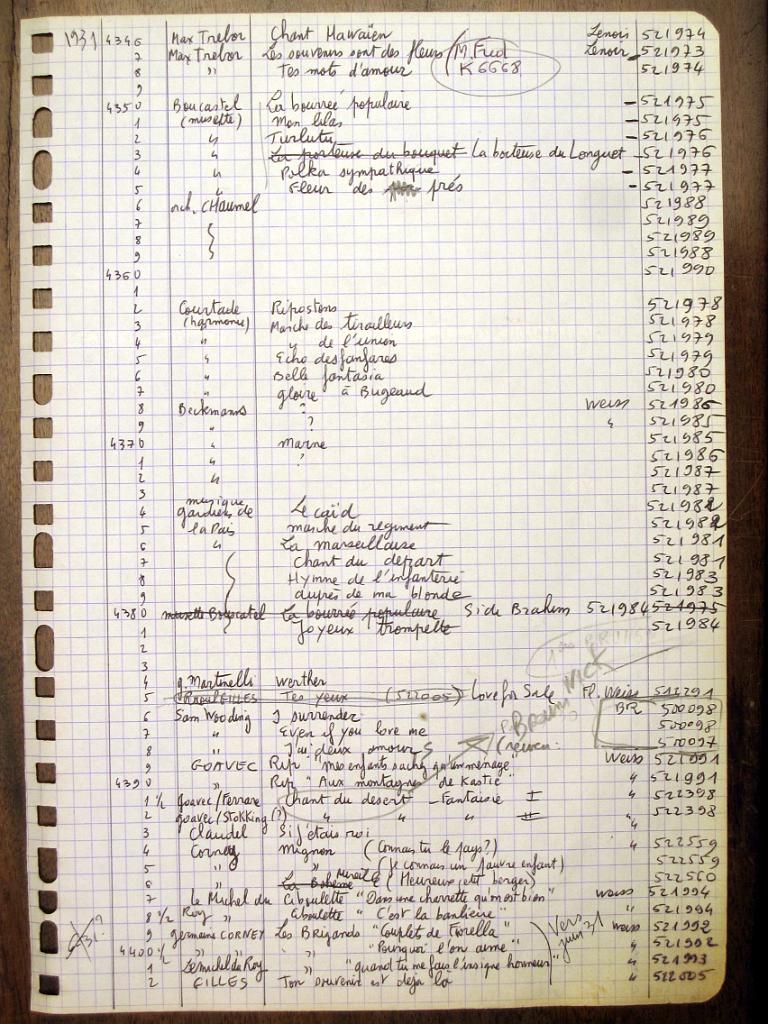 1931 4346 Max Trebor Chant Hawaïen Lenoir 521974
7 Max Trebor Les souvenirs sont des fleurs / M. Fred Lenoir 521973
8 " Tes mots d'amour K 6668 521974
9
4350 Boucastel La bourreé populaire - 521975
1 (musette) mon lilas - 521975
2 " Turlututu - 521976
3 " La porteuse du bouquet La boiteuse du Longuet - 521976
4 " Polka sympathique - 521977
5 " Fleur des prés - 521977
6 orch. CHaumel 521988
7 521989
8 521989
9 521988
4360 521990
1
2 Courtade Ripostons 521978
3 (harmonie) Marche des tirailleurs 521978
4 " " de l'union 521979
5 " Echo des fanfares 521979
6 " Belle fantasia 521980
7 " gloire à Bugeaud 521980
8 Beckmanns ? Weiss 521986
9 " ? " 521985
4370 " marne 521985
1 " ? 521986
2 " 521987
3 521987
4 musique gardiens de Le caïd 521982
5 la Paix marche du regiment 521982
6 " La marseillaise 521981
7 Chant du depart 521981
8 Hymne de l'infanterie 521983
9 aupres de ma blonde 521983
4380 musette Boucastel La bourreé populaire Sidi Brahim 521984 521975
1 Joyeux trompette 521984
2
3
4 g. Martinelli Werther
5 Raoul GILLES Tes yeux (522005) Love for Sale Fl. Weiss 512291
6 Sam Wooding I surrender BR 500098
7 " Even if you love me 500098
8 " J'ai deux amours 500097
9 GOAVEC Rip "mes enfants sachez qu'en menage" Weiss 521991
4390 " Rip "Aux montagnes de Kastic" " 521991
1 ½ goavec/Ferrare Chant du desert - Fantaisie I " 522398
2 goavec/Stokking (?) " " " II " 522398
3 Claudel Si j'etais roi "
4 Corney Mignon (Connais tu le pays?) " 522559
5 " " (Je connais un pauvre enfant) 522559
6 " La Boheme Mireille (Heureux petit berger) 522560
7 Le Michel du Ciboulette "Dans une charrette qu'on est bien" Weiss 521994
8 ½ Roy " Ciboulette "C'est la banlieue" " 521994
9 germaine CORNEY Les Brigands "Couplet de Fiorella" Vers juin 31 Weiss 521992
4400 ½ " " "Pourquoi l'on aime" " 521992
1 Le michel du Roy " "quand tu me fais l'insigne honneur" " 521993
2 GILLES Ton souvenir est deja la " 522005